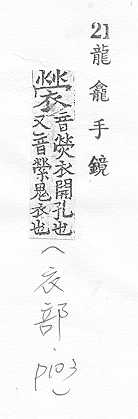 21 龍龕手鏡
褮音熒衣開孔也
又音縈鬼衣也
(衣部·p103)